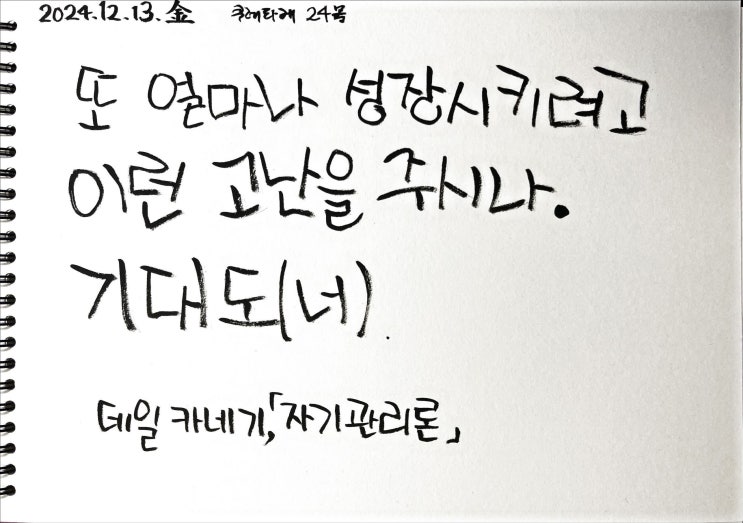 2024.12.13.金 쿠레타케 24목
또 얼마나 성장시키려고
이런 고난을 주시나.
기대도(너)
데일 카네기,「자기관리론」